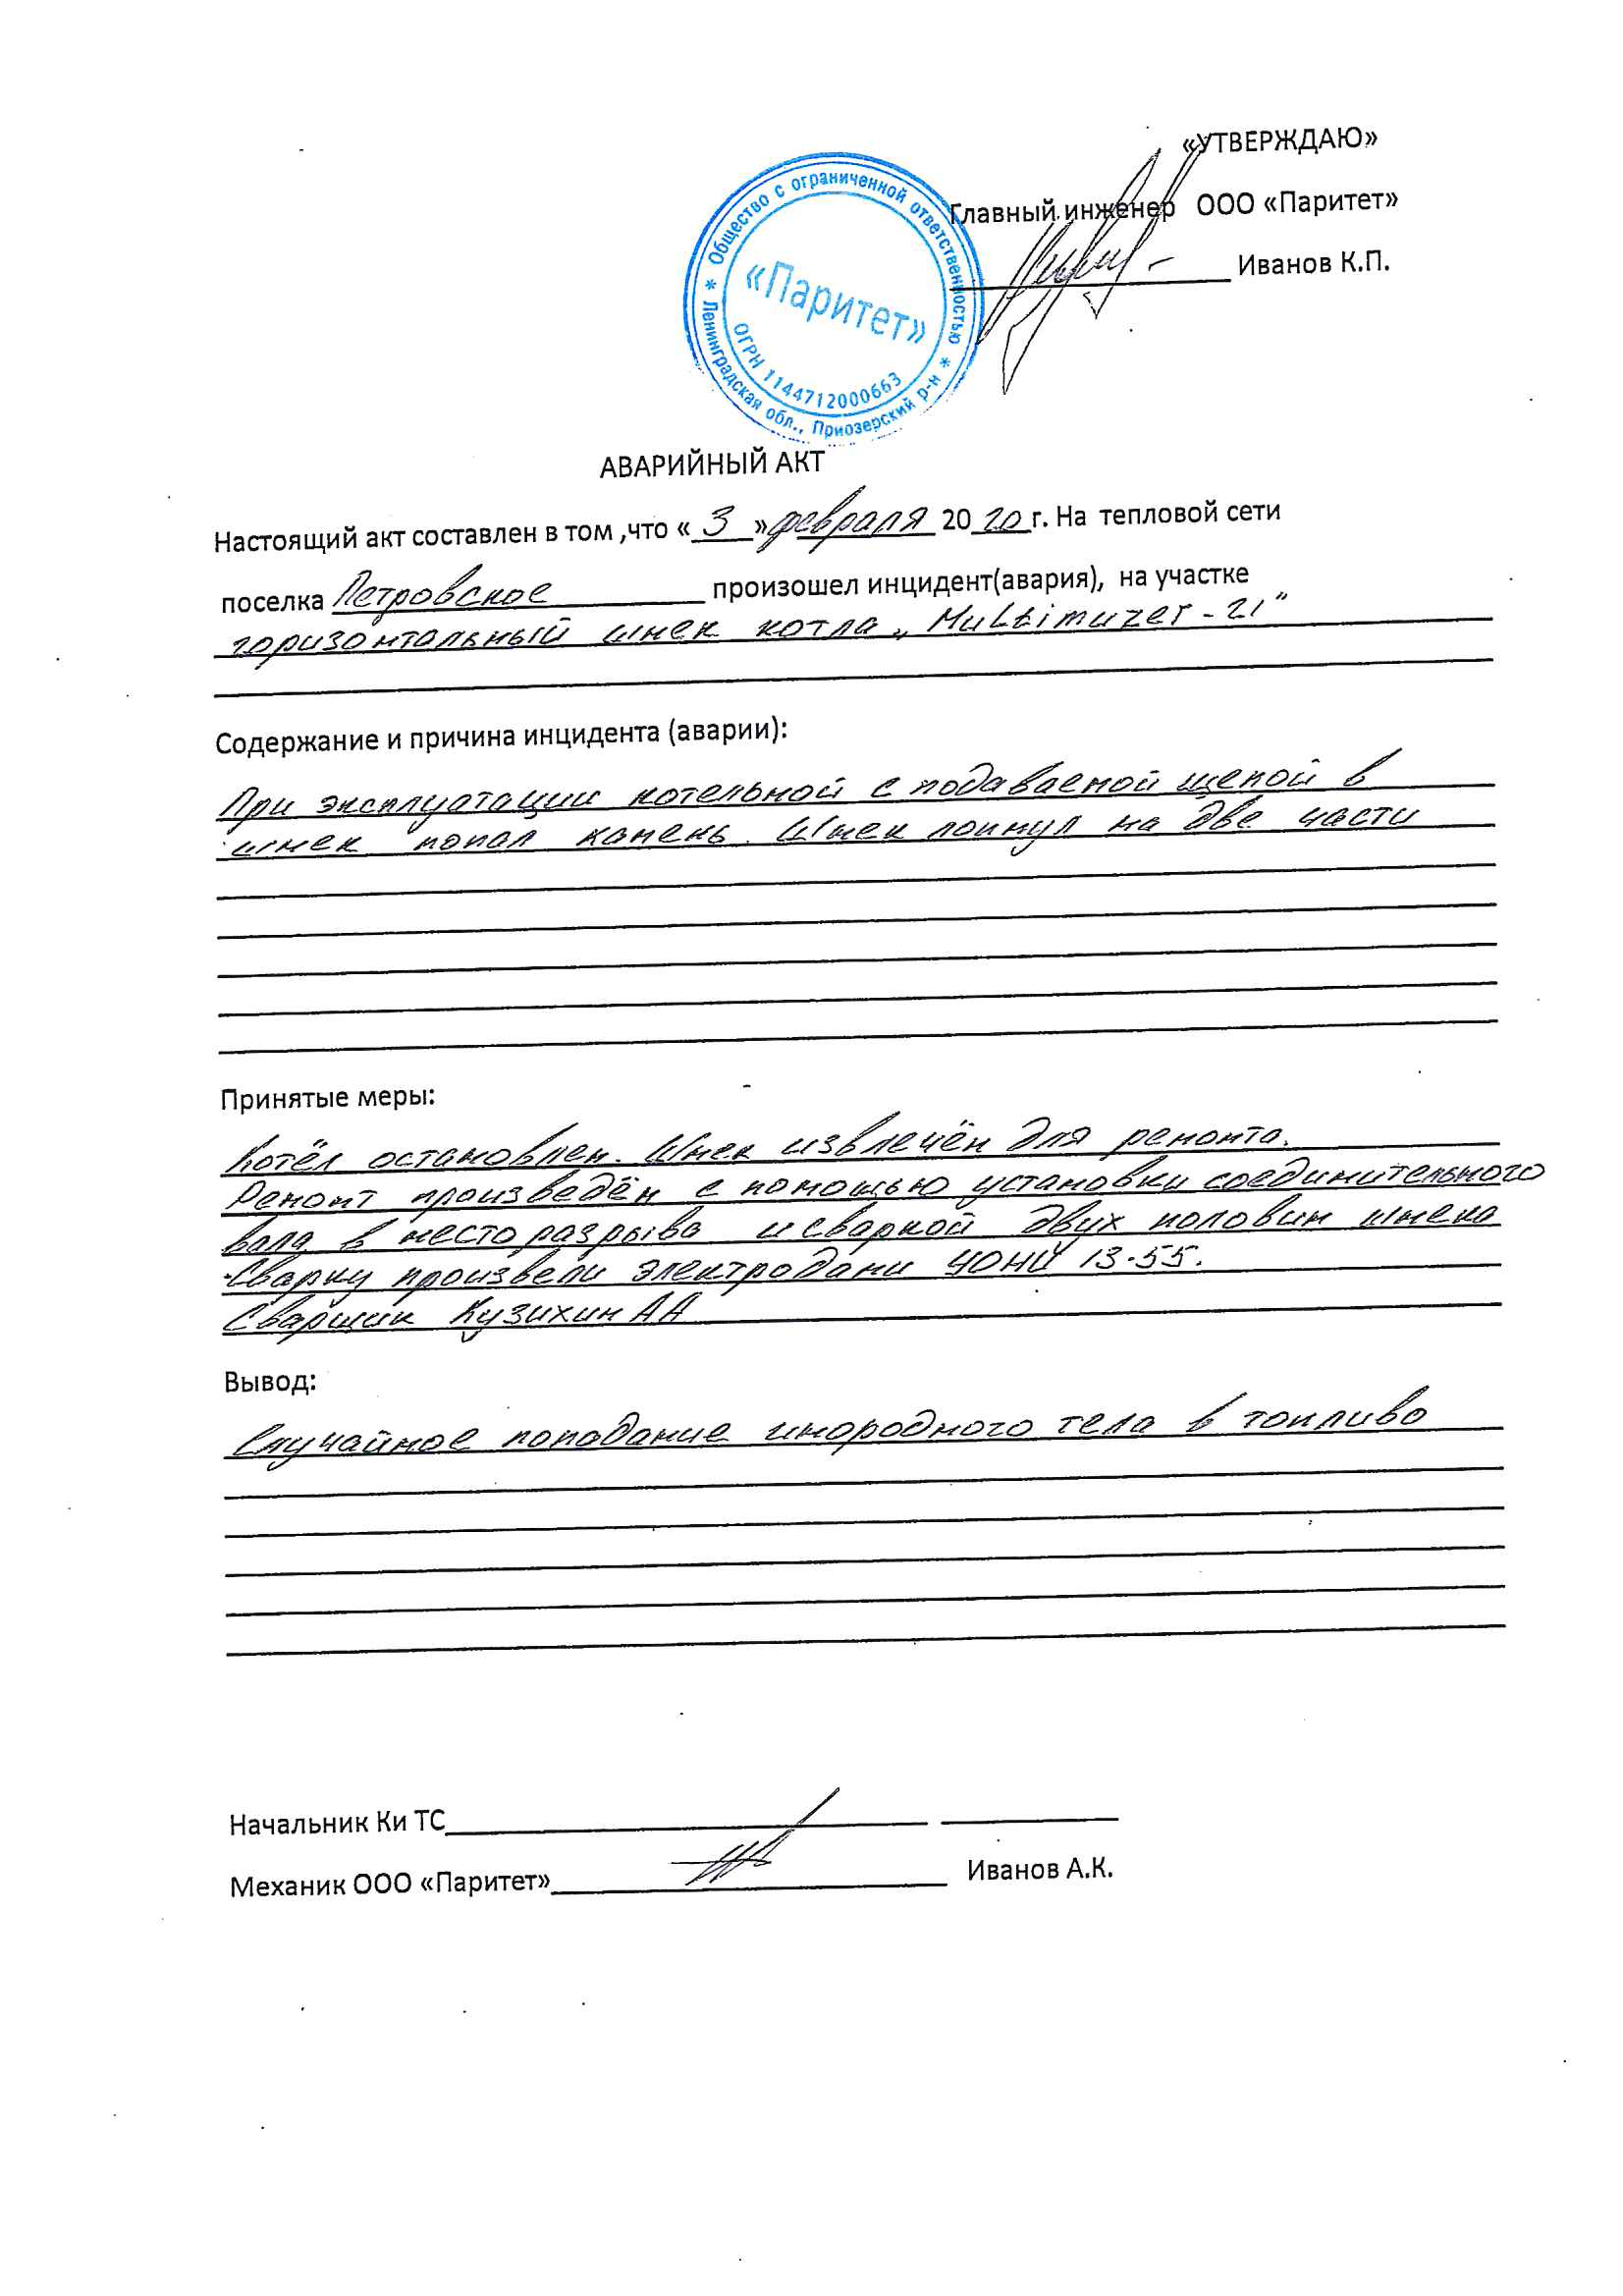 «УТВЕРЖДАЮ»
Главный инженер ООО «Паритет»
Иванов К.П.
* Общество с ограниченной ответственностью *
Ленинградская обл., Приозерский р-н
«Паритет»
ОГРН 1144712000663
АВАРИЙНЫЙ АКТ
Настоящий акт составлен в том ,что « 3 » февраля 20 20 г. На тепловой сети
поселка Петровское произошел инцидент(авария), на участке
горизонтальный шнек котла „Multimuzer-21"
Содержание и причина инцидента (аварии):
При эксплуатации котельной с подаваемой щепой в
шнек попал камень. Шнек лопнул на две части
Принятые меры:
Котёл остановлен. Шнек извлечён для ремонта.
Ремонт произведён с помощью установки соединительного
вала в место разрыва и сваркой двух половин шнека
Сварку произвели электродами УОНИ 13-55.
Сварщик Кузихин АА
Вывод:
Случайное попадание инородного тела в топливо
Начальник Ки ТС
Механик ООО «Паритет» Иванов А.К.